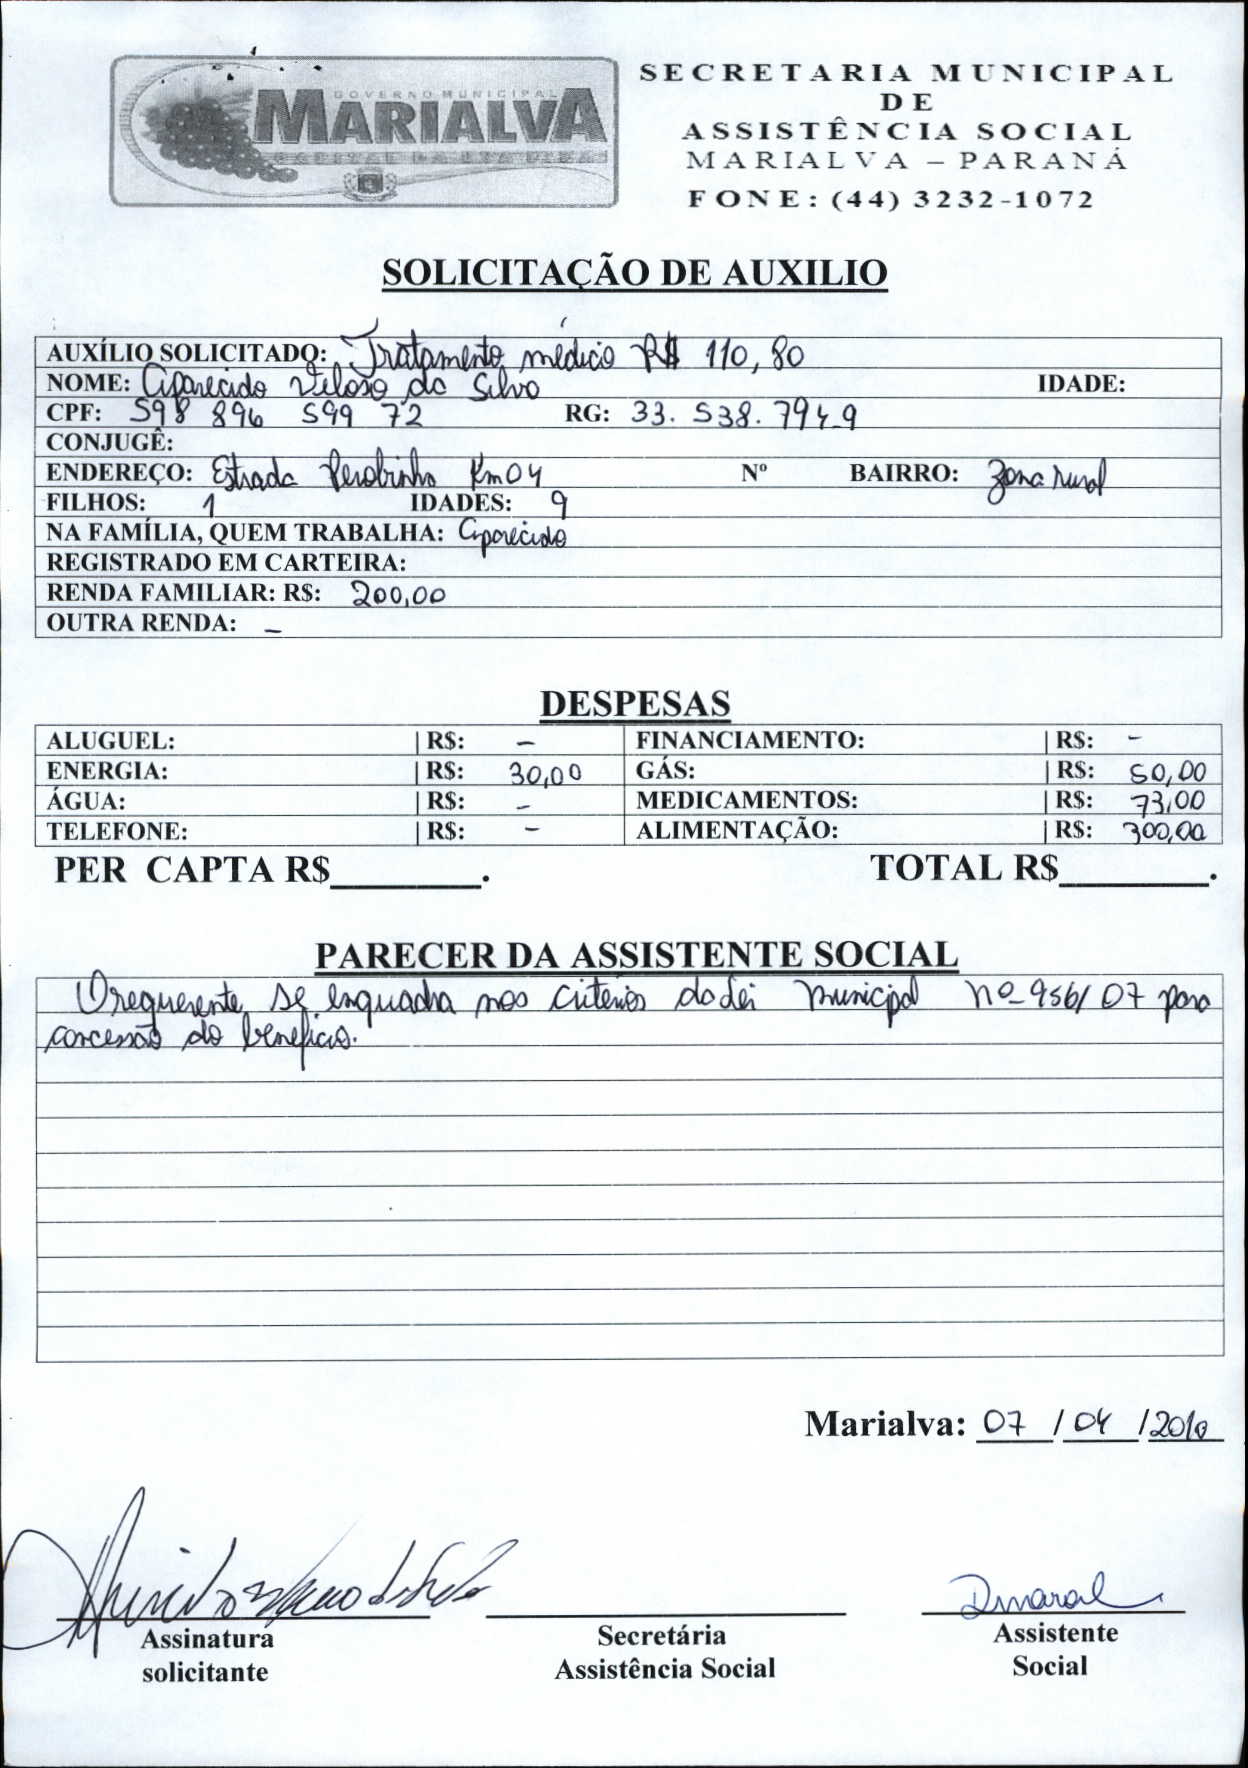 GOVERNO MUNICIPAL
MARIALVA
CAPITAL DA UVA FINA
SECRETARIA MUNICIPAL
DE
ASSISTÊNCIA SOCIAL
MARIALVA – PARANÁ
FONE: (44) 3232-1072
SOLICITAÇÃO DE AUXILIO
AUXÍLIO SOLICITADO: Tratamento médico R$ 110,80
NOME: Aparecido Veloso da Silva IDADE:
CPF: 598 896 599 72 RG: 33. 538. 794-9
CONJUGÊ:
ENDEREÇO: Estrada Perobinha Km 04 Nº BAIRRO: Zona rural
FILHOS: 1 IDADES: 9
NA FAMÍLIA, QUEM TRABALHA: Aparecido
REGISTRADO EM CARTEIRA:
RENDA FAMILIAR: R$: 200,00
OUTRA RENDA: –
DESPESAS
ALUGUEL: | R$: – FINANCIAMENTO: | R$: –
ENERGIA: | R$: 30,00 GÁS: | R$: 50,00
ÁGUA: | R$: – MEDICAMENTOS: | R$: 73,00
TELEFONE: | R$: – ALIMENTAÇÃO: | R$: 300,00
PER CAPTA R$________. TOTAL R$________.
PARECER DA ASSISTENTE SOCIAL
O requerente se enquadra nos critérios da Lei Municipal nº 956/07 para
concessão do benefício.
Marialva: 07 / 04 / 2010
Assinatura Secretária Assistente
solicitante Assistência Social Social